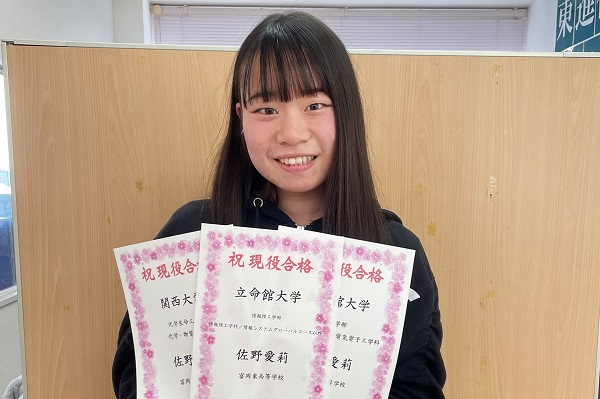 東進
祝現役合格
関西大
化学生命工
化学・物質
佐野
富岡東
祝現役合格
立命館大学
情報理工学部
情報理工学科/情報システムグローバルコース以外
佐野愛莉
富岡東高等学校
現役合格
館大学
学部
電気電子工学科
愛莉
等学校